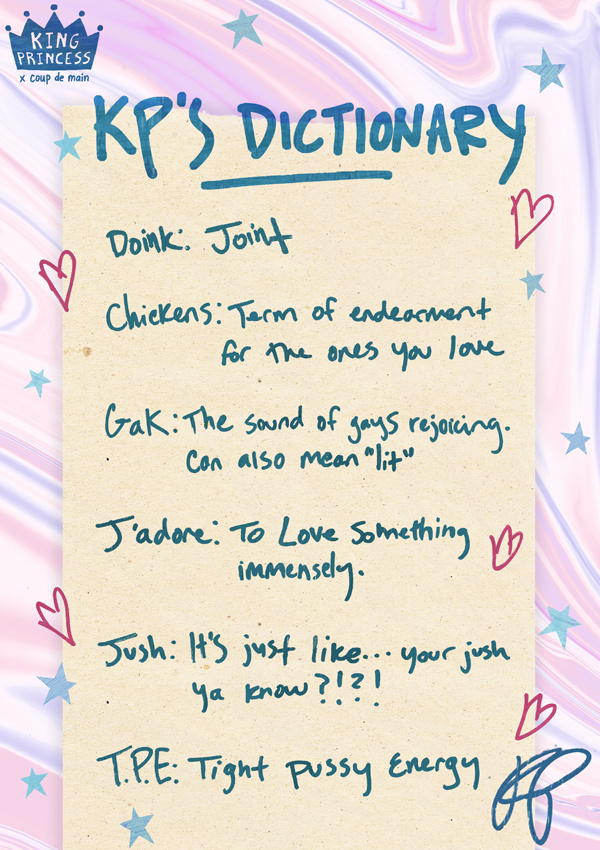 KING
PRINCESS
x coup de main
KP'S DICTIONARY
Doink: Joint
Chickens: Term of endearment
for the ones you love
GaK: The sound of gays rejoicing.
Can also mean "lit"
J'adore: To Love Something
immensely.
Jush: It's just like... your jush
ya know?!?!
T.P.E: Tight pussy Energy
KP